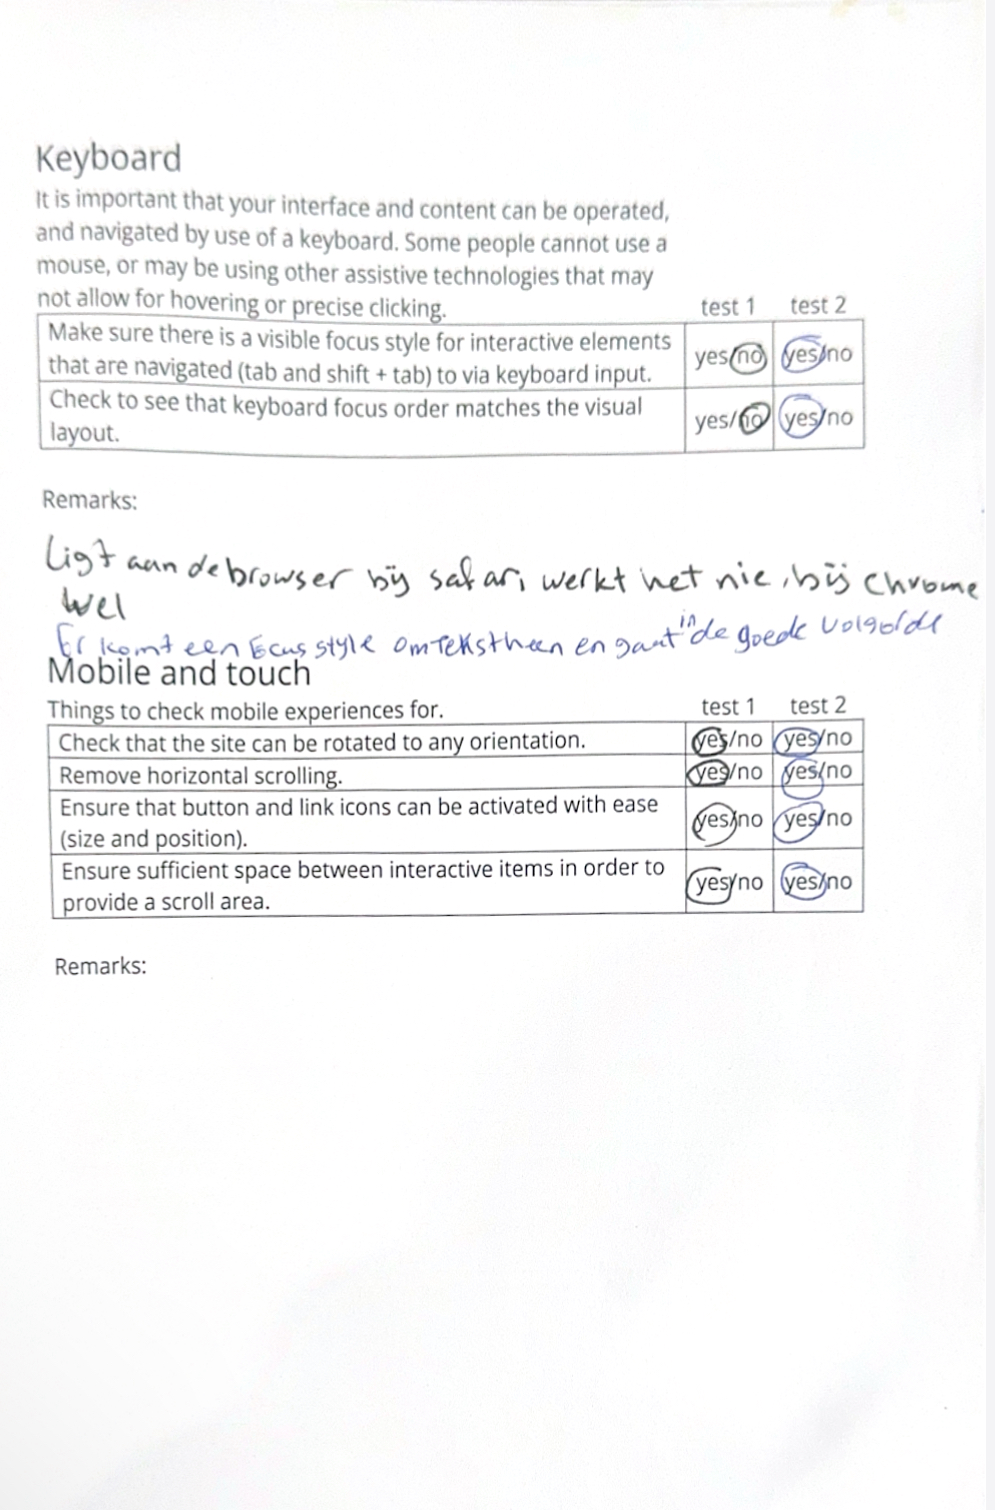 Keyboard
It is important that your interface and content can be operated,
and navigated by use of a keyboard. Some people cannot use a
mouse, or may be using other assistive technologies that may
not allow for hovering or precise clicking.
test 1 test 2
Make sure there is a visible focus style for interactive elements
that are navigated (tab and shift + tab) to via keyboard input.
yes/no yes/no
Check to see that keyboard focus order matches the visual
layout.
yes/no yes/no
Remarks:
Ligt aan de browser bij safari werkt het nie, bij Chrome
wel
Er komt een focus style om tekst heen en gaat in de goede volgorde
Mobile and touch
Things to check mobile experiences for.
test 1 test 2
Check that the site can be rotated to any orientation. yes/no yes/no
Remove horizontal scrolling. yes/no yes/no
Ensure that button and link icons can be activated with ease
(size and position).
yes/no yes/no
Ensure sufficient space between interactive items in order to
provide a scroll area.
yes/no yes/no
Remarks: